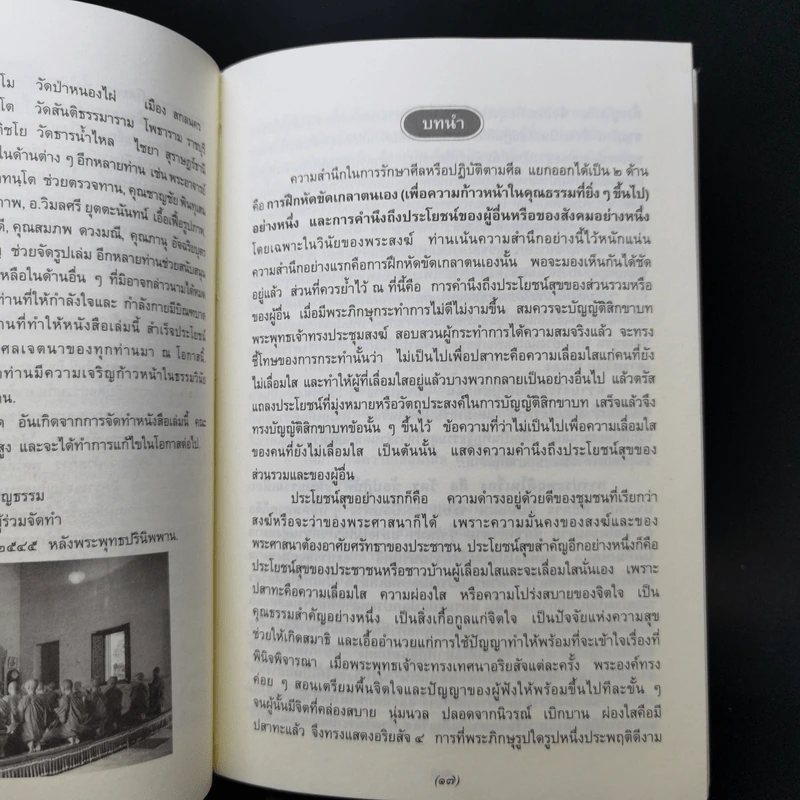 โม วัดป่าหนองไผ่ เมือง สกลนคร
โต วัดสันติธรรมาราม โพธาราม ราชบุรี
ติชโย วัดธารน้ำไหล ไชยา สุราษฎร์ธานี
ในด้านต่าง ๆ อีกหลายท่าน เช่น พระอาจารย์
ทนฺโต ช่วยตรวจทาน, คุณชาญชัย
ภาพ, อ.วิมลศรี ยุตตะนันทน์ เอื้อเฟื้อรูปภาพ,
ดี, คุณสมภพ ดวงมณี, คุณภานุ อัจฉริยบุตร
ช่วยจัดรูปเล่ม อีกหลายท่านช่วยสนับสนุน
หลือในด้านอื่น ๆ ที่มิอาจกล่าวนามได้หมด
ท่านที่ให้กำลังใจและ กำลังกายมีบิณฑบาต
านที่ทำให้หนังสือเล่มนี้ สำเร็จประโยชน์
ศลเจตนาของทุกท่านมา ณ โอกาสนี้
านมีความเจริญก้าวหน้าในธรรมวินัย
าน.
ด อันเกิดจากการจัดทำหนังสือเล่มนี้ คณะ
สูง และจะได้ทำการแก้ไขในโอกาสต่อไป.
ญธรรม
ผู้ร่วมจัดทำ
๒๕๔๕ หลังพระพุทธปรินิพพาน.
บทนำ
ความสำนึกในการรักษาศีลหรือปฏิบัติตามศีล แยกออกได้เป็น ๒ ด้าน
คือ การฝึกหัดขัดเกลาตนเอง (เพื่อความก้าวหน้าในคุณธรรมที่ยิ่ง ๆ ขึ้นไป)
อย่างหนึ่ง และการคำนึงถึงประโยชน์ของผู้อื่นหรือของสังคมอย่างหนึ่ง
โดยเฉพาะในวินัยของพระสงฆ์ ท่านเน้นความสำนึกอย่างนี้ไว้หนักแน่น
ความสำนึกอย่างแรกคือการฝึกหัดขัดเกลาตนเองนั้น พอจะมองเห็นกันได้ชัด
อยู่แล้ว ส่วนที่ควรย้ำไว้ ณ ที่นี้คือ การคำนึงถึงประโยชน์สุขของส่วนรวมหรือ
ของผู้อื่น เมื่อมีพระภิกษุกระทำการไม่ดีไม่งามขึ้น สมควรจะบัญญัติสิกขาบท
พระพุทธเจ้าทรงประชุมสงฆ์ สอบสวนผู้กระทำการได้ความสมจริงแล้ว จะทรง
ชี้โทษของการกระทำนั้นว่า ไม่เป็นไปเพื่อปสาทะคือความเลื่อมใสแก่คนที่ยัง
ไม่เลื่อมใส และทำให้ผู้ที่เลื่อมใสอยู่แล้วบางพวกกลายเป็นอย่างอื่นไป แล้วตรัส
แถลงประโยชน์ที่มุ่งหมายหรือวัตถุประสงค์ในการบัญญัติสิกขาบท เสร็จแล้วจึง
ทรงบัญญัติสิกขาบทข้อนั้น ๆ ขึ้นไว้ ข้อความที่ว่าไม่เป็นไปเพื่อความเลื่อมใส
ของคนที่ยังไม่เลื่อมใส เป็นต้นนั้น แสดงความคำนึงถึงประโยชน์สุขของ
ส่วนรวมและของผู้อื่น
ประโยชน์สุขอย่างแรกก็คือ ความดำรงอยู่ด้วยดีของชุมชนที่เรียกว่า
สงฆ์หรือจะว่าของพระศาสนาก็ได้ เพราะความมั่นคงของสงฆ์และของ
พระศาสนาต้องอาศัยศรัทธาของประชาชน ประโยชน์สุขสำคัญอีกอย่างหนึ่งก็คือ
ประโยชน์สุขของประชาชนหรือชาวบ้านผู้เลื่อมใสและจะเลื่อมใสนั่นเอง เพราะ
ปสาทะคือความเลื่อมใส ความผ่องใส หรือความโปร่งสบายของจิตใจ เป็น
คุณธรรมสำคัญอย่างหนึ่ง เป็นสิ่งเกื้อกูลแก่จิตใจ เป็นปัจจัยแห่งความสุข
ช่วยให้เกิดสมาธิ และเอื้ออำนวยแก่การใช้ปัญญาทำให้พร้อมที่จะเข้าใจเรื่องที่
พินิจพิจารณา เมื่อพระพุทธเจ้าจะทรงเทศนาอริยสัจแต่ละครั้ง พระองค์ทรง
ค่อย ๆ สอนเตรียมพื้นจิตใจและปัญญาของผู้ฟังให้พร้อมขึ้นไปทีละขั้น ๆ
จนผู้นั้นมีจิตที่คล่องสบาย นุ่มนวล ปลอดจากนิวรณ์ เบิกบาน ผ่องใสคือมี
ปสาทะแล้ว จึงทรงแสดงอริยสัจ ๔ การที่พระภิกษุรูปใดรูปหนึ่งประพฤติดีงาม
(๑๗)